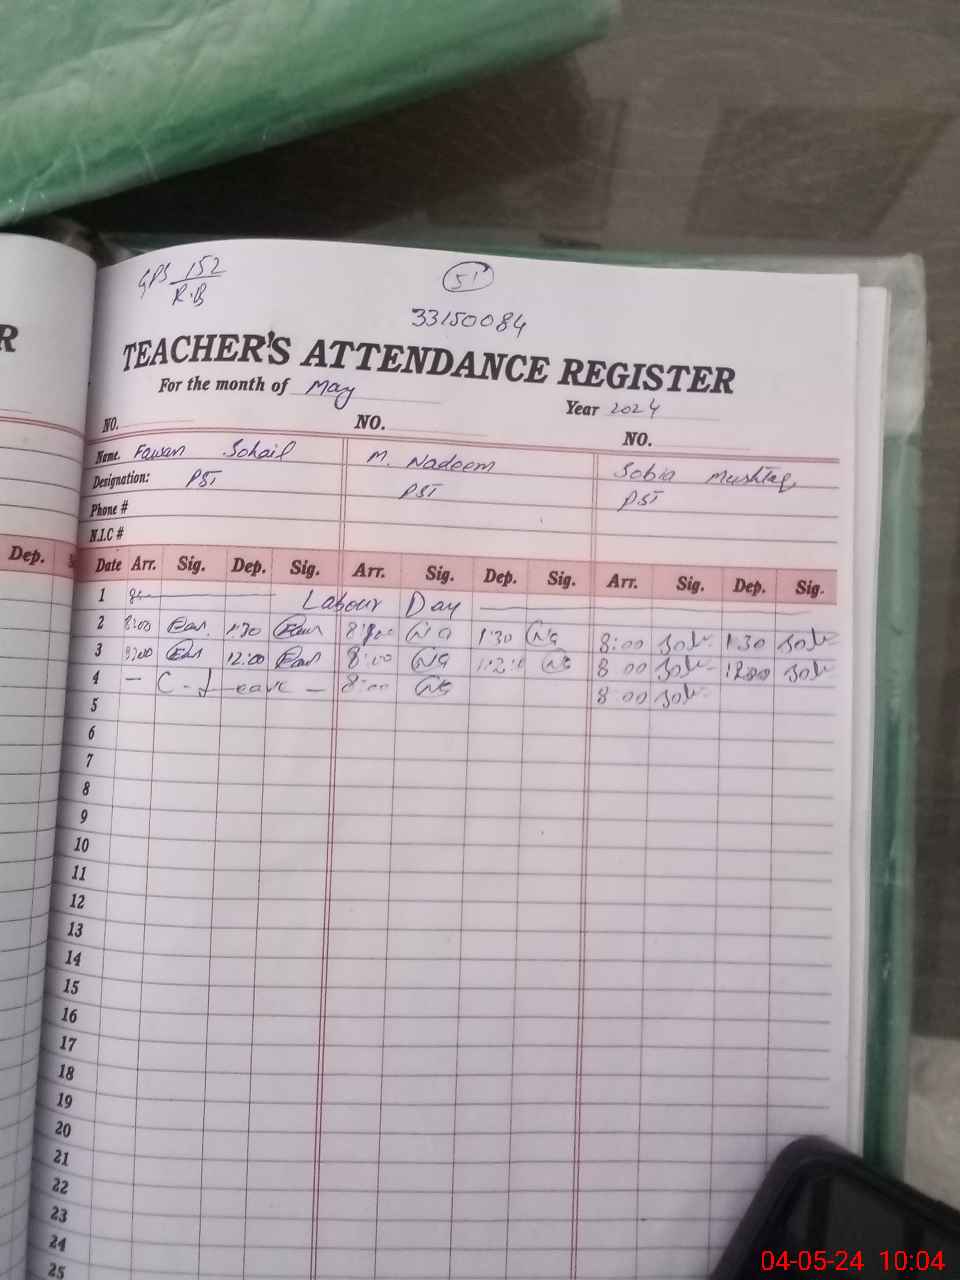 GPS 152
R.B
51
33150084
R
TEACHER'S ATTENDANCE REGISTER
For the month of May
Year 2024
NO. NO. NO.
Name. Fawan Sohail M. Nadeem Sobia Mushtaq
Designation: PST PST PST
Phone #
N.I.C #
Dep.
Date Arr. Sig. Dep. Sig. Arr. Sig. Dep. Sig. Arr. Sig. Dep. Sig.
1 Labour Day
2 8:00 1:30 8:00 1:30 8:00 1:30
3 8:00 12:00 8:00 12:00 8:00 12:00
4 - C-Leave - 8:00 8:00
5
6
7
8
9
10
11
12
13
14
15
16
17
18
19
20
21
22
23
24
25
04-05-24 10:04